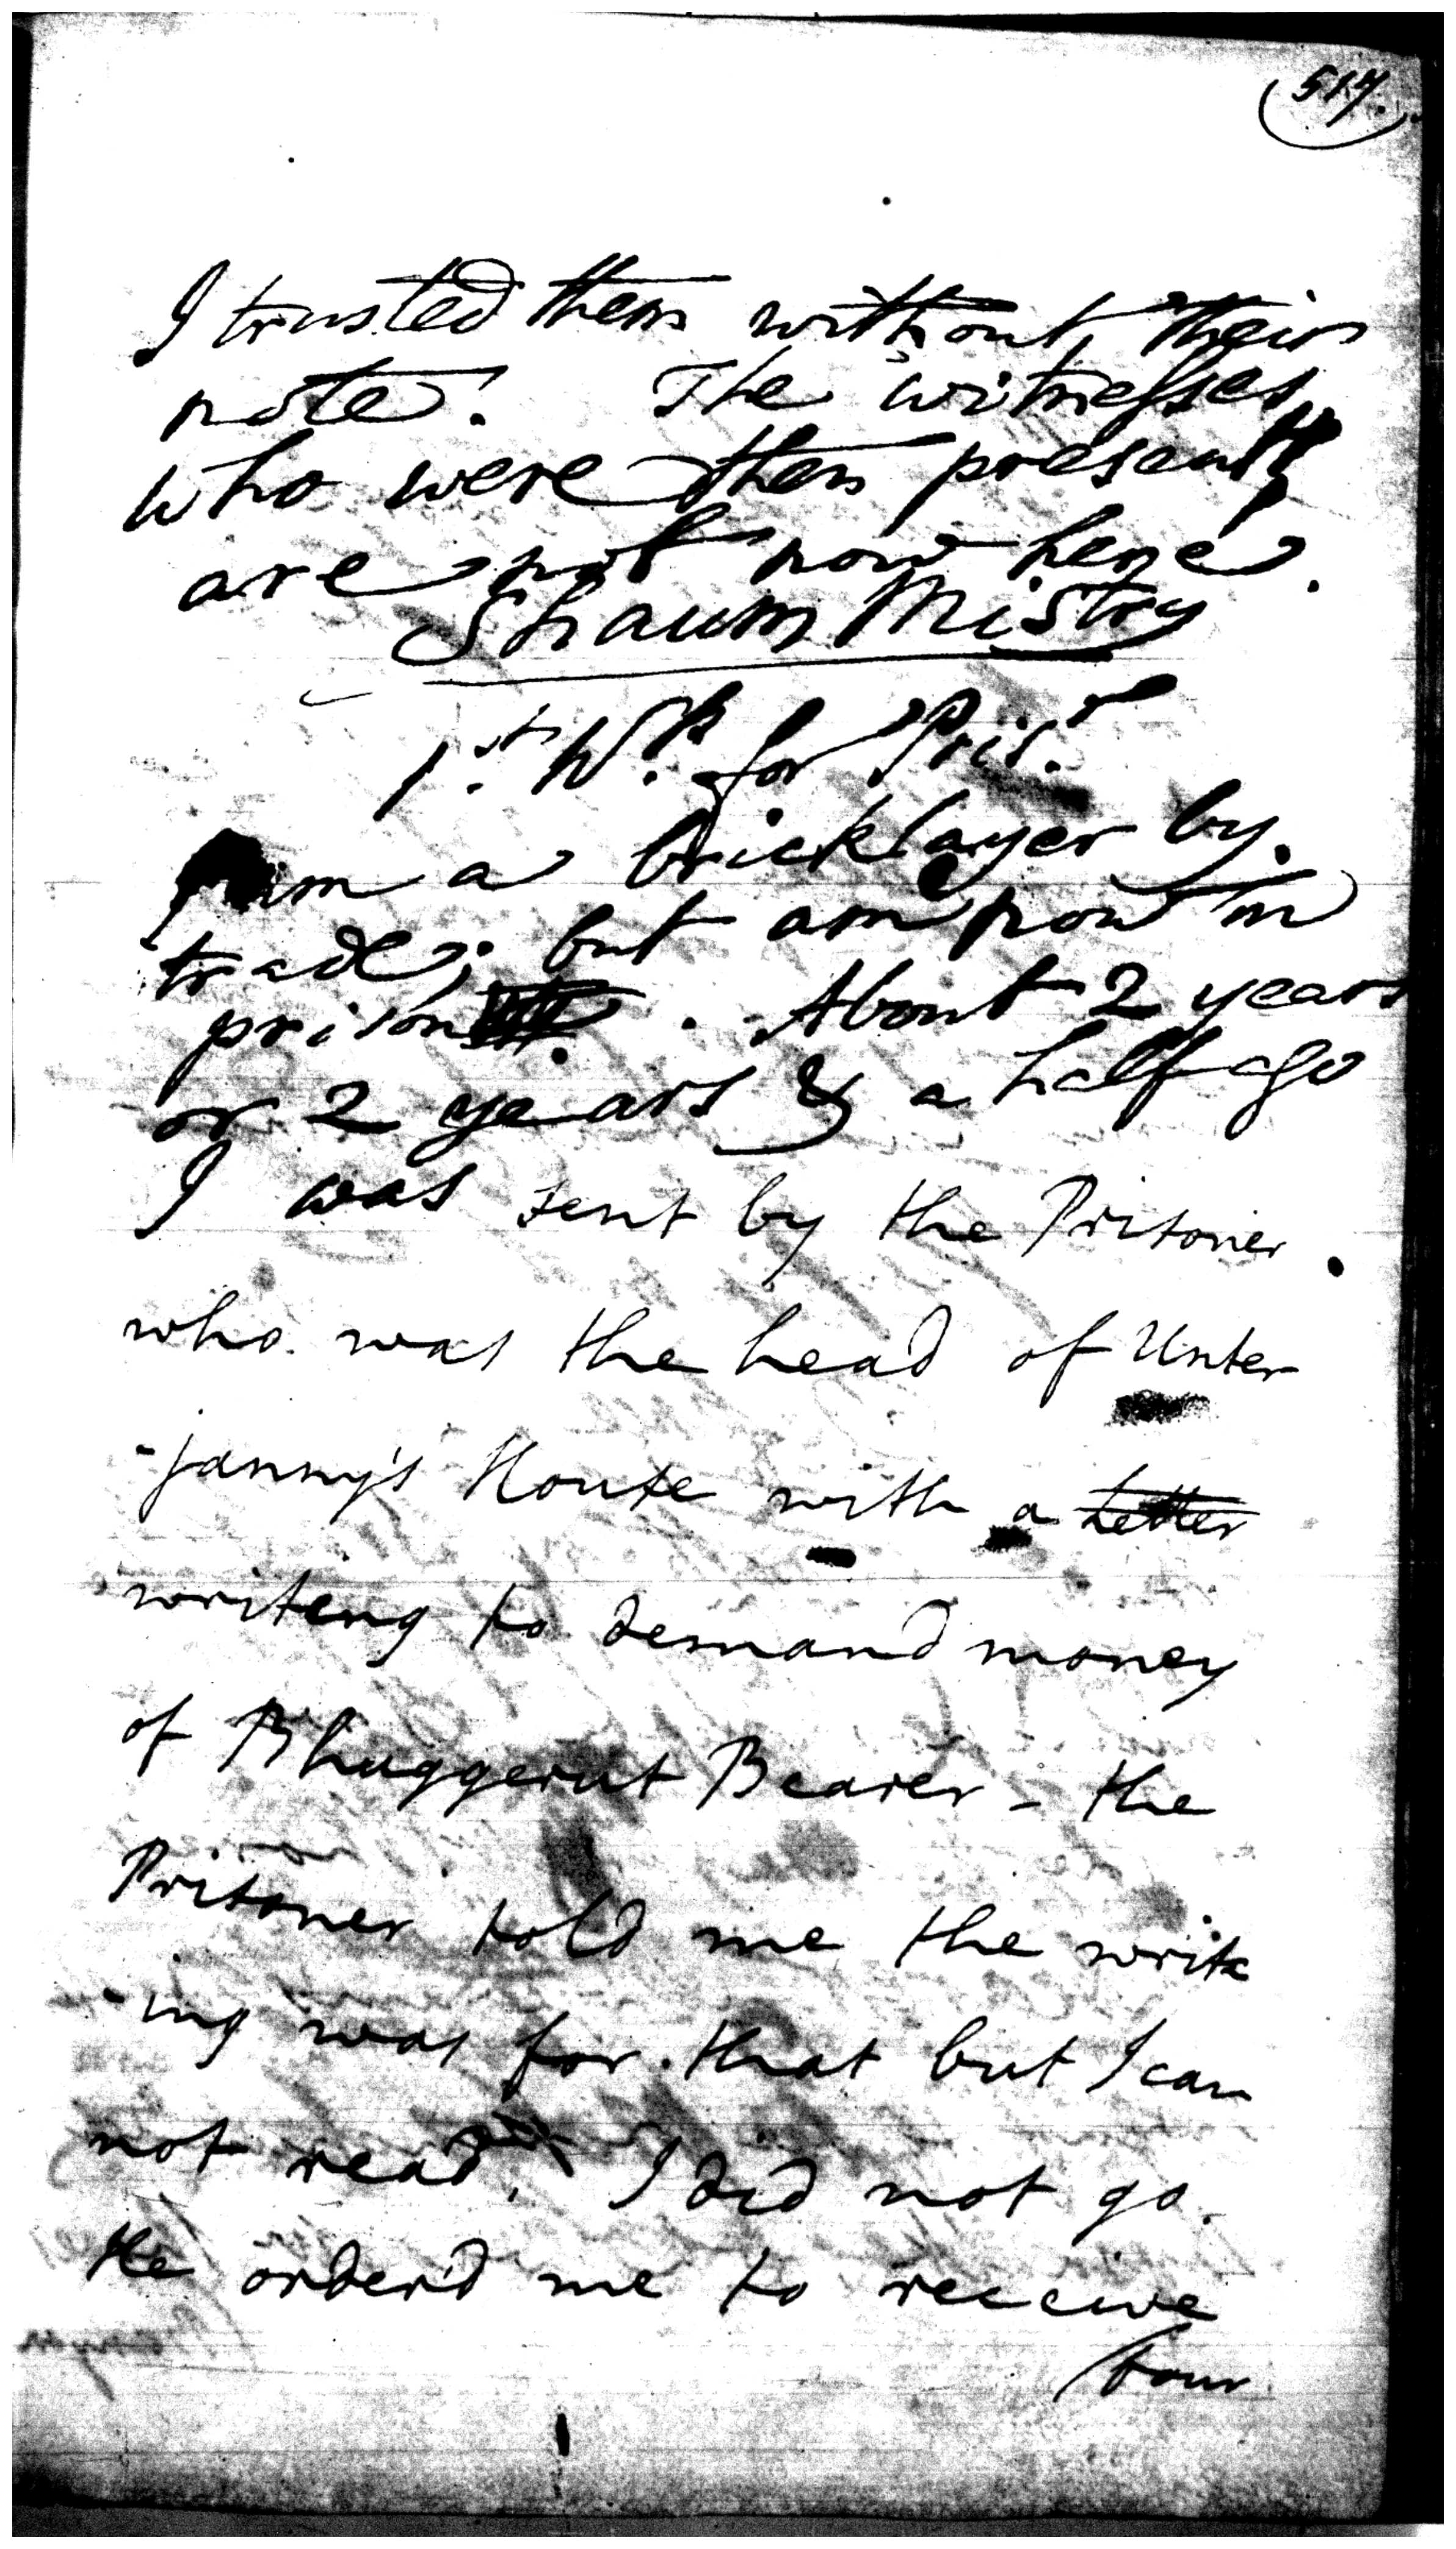 517.
I trusted them without their
note. The witnesses
who were then present
are not now here.
Shaum Mistry
1st. Ws. for Prisr.
I am a bricklayer by
trade; but am now in
prison. About 2 years
or 2 years & a half ago
I was sent by the Prisoner
who was the head of Unter
-janny's House with a letter
writeng to demand money
of Bhuggerut Bearer - the
Prisoner told me the writ
-ing was for that but I can
not read. I did not go.
He orderd me to receive
four